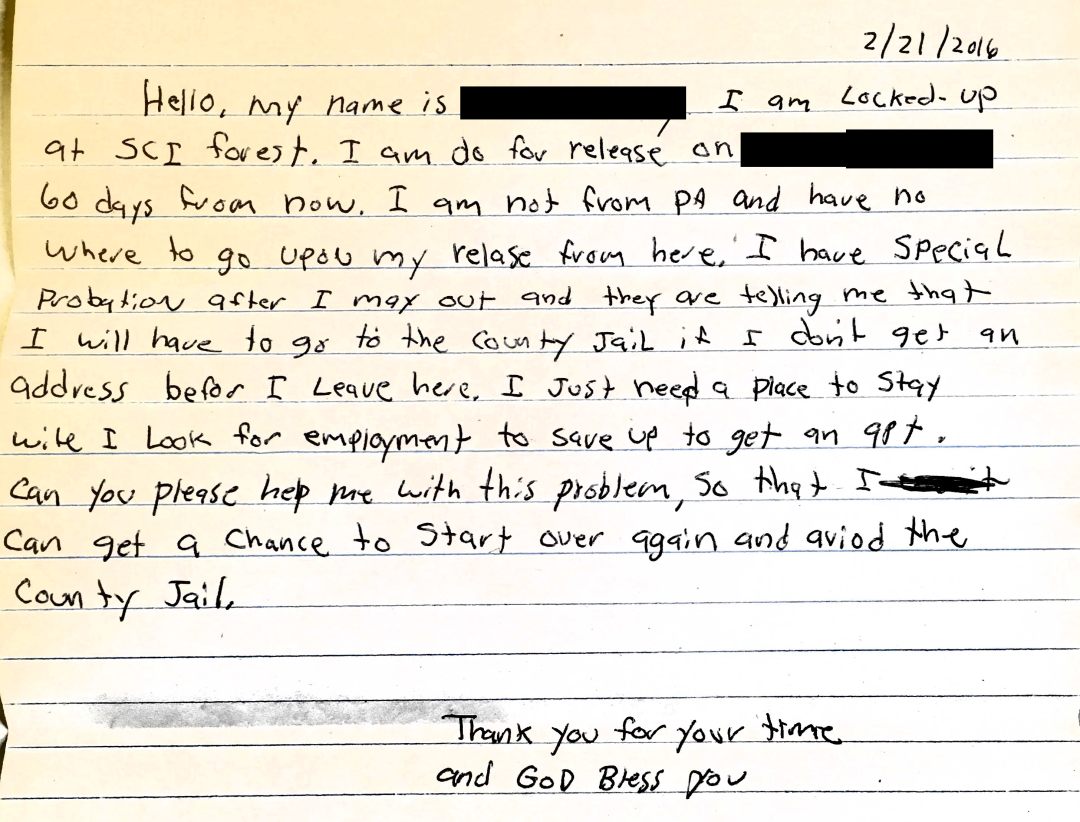 2/21/2016
Hello, my name is I am Locked-up
at SCI forest. I am do for release on
60 days from now. I am not from PA and have no
where to go upon my relase from here. I have Special
Probation after I max out and they are telling me that
I will have to go to the County Jail if I don't get an
address befor I Leave here. I Just need a place to Stay
wile I Look for employment to save up to get an apt.
Can you please help me with this problem, So that I
Can get a Chance to Start over again and aviod the
County Jail.
Thank you for your time
and GOD Bless you